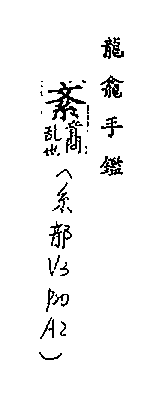 龍龕手鑑
紊音問乱也（糸部 V3 A2）